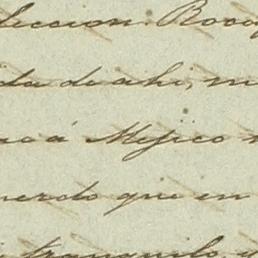 leccion. Roco
da de ahi, m
a á Mejico
uerdo que en
tranquilo, y